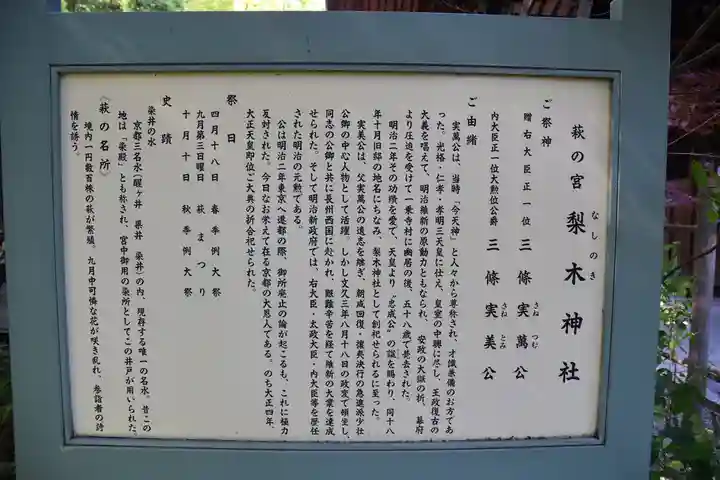 萩の宮 梨木神社
なしのき
ご祭神
贈右大臣正一位 三條実萬公
さね つむ
内大臣正一位大勲位公爵 三條実美公
さね とみ
ご由緒
実萬公は、当時「今天神」と人々から尊称され、才識兼備のお方であ
った。光格・仁孝・孝明三天皇に仕え、皇室の中興に尽し、王政復古の
大義を唱えて、明治維新の原動力ともなられ、安政の大獄の折、幕府
より圧迫を受けて一乗寺村に幽居の後、五十八歳で薨去された。
明治二年その功績を愛で、天皇より〝忠成公〟の諡を賜わり、同十八
年十月旧邸の地名にちなみ、梨木神社として創祀せられるに至った。
実美公は、父実萬公の遺志を継ぎ、朝威回復・攘夷決行の急進派少壮
公卿の中心人物として活躍。しかし文久三年八月十八日の政変で頓坐し、
同志の公卿と共に長州西国に赴かれ、艱難辛苦を経て維新の大業を達成
せられた。そして明治新政府では、右大臣・太政大臣・内大臣等を歴任
された明治の元勲である。
公は明治二年東京へ遷都の際、御所廃止の論が起こるも、これに極力
反対された。今日なお学えて在る京都の大恩人である。のち大正四年、
大正天皇即位ご大典の折合祀せられた。
祭日
四月十八日 春季例大祭
九月第三日曜日 萩まつり
十月十日 秋季例大祭
史蹟
染井の水
京都三名水(醒ヶ井 県井 染井)の内、現存する唯一の名水。昔この
地は「染殿」とも称され、宮中御用の染所としてこの井戸が用いられた。
《萩の名所》
境内一円数百株の萩が繁殖。九月中可憐な花が咲き乱れ、参詣者の詩
情を誘う。